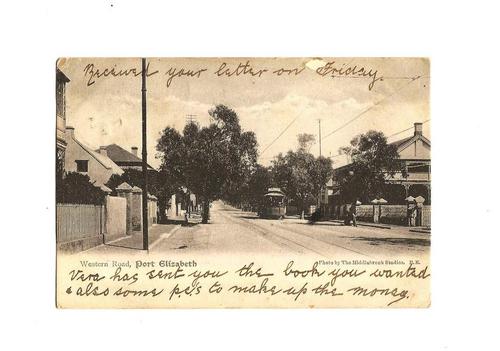 Received your letter on Friday
Western Road, Port Elizabeth
Photo by The Middlebrook Studios. P.E.
Vera has sent you the book you wanted
& also some pc's to make up the money.